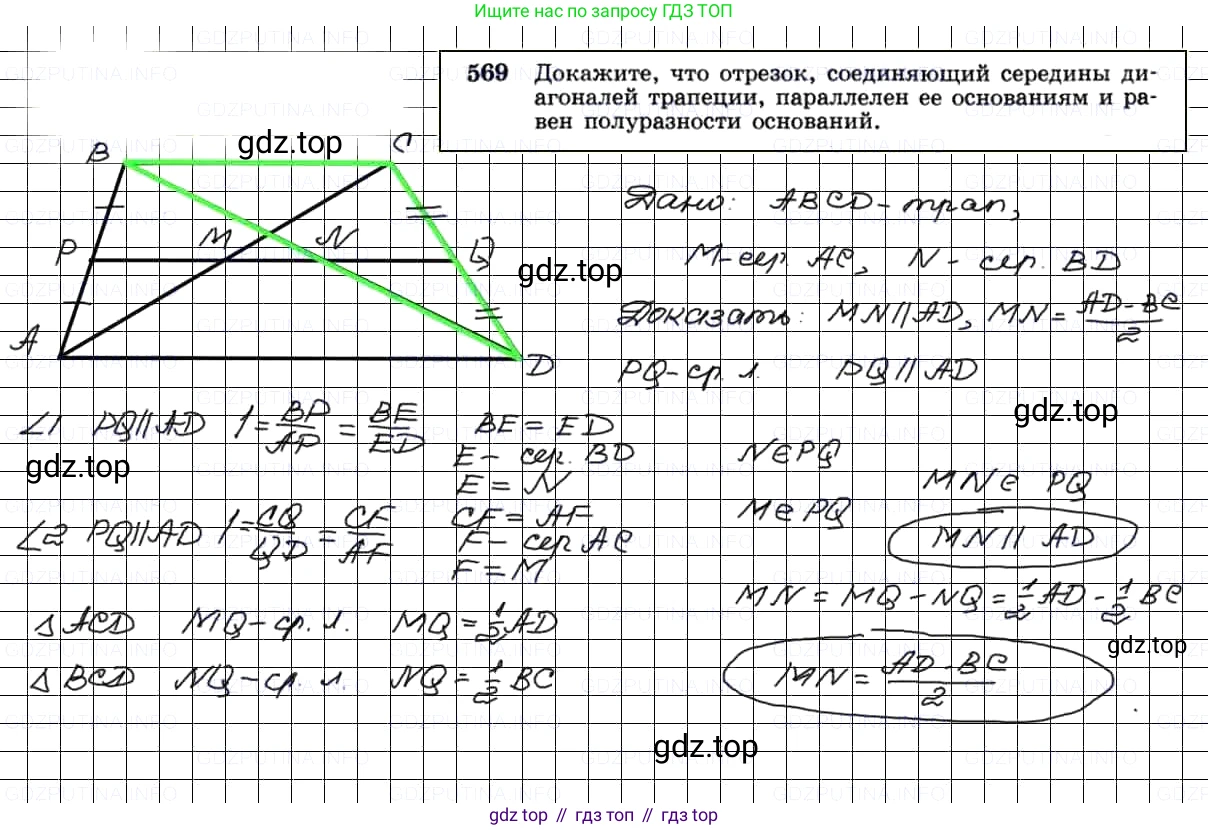 Ищите нас по запросу ГДЗ ТОП
569 Докажите, что отрезок, соединяющий середины ди-
агоналей трапеции, параллелен ее основаниям и ра-
вен полуразности оснований.
gdz.top
B C
P M N Q
A D
Дано: ABCD - трап,
M - сер. AC, N - сер. BD
gdz.top
Доказать: MN || AD, MN = (AD - BC)/2
PQ - ср. л. PQ || AD
gdz.top
∠1 PQ || AD 1 = BP/AP = BE/ED BE = ED
E - сер. BD
E = N
gdz.top
∠2 PQ || AD 1 = CQ/QD = CF/AF CF = AF
F - сер AC
F = M
N ∈ PQ
M ∈ PQ
MN ∈ PQ
MN || AD
△ACD MQ - ср. л. MQ = 1/2 AD
△BCD NQ - ср. л. NQ = 1/2 BC
MN = MQ - NQ = 1/2 AD - 1/2 BC
gdz.top
MN = (AD - BC)/2
gdz.top
gdz top // гдз топ // gdz top
GDZPUTINA.INFO